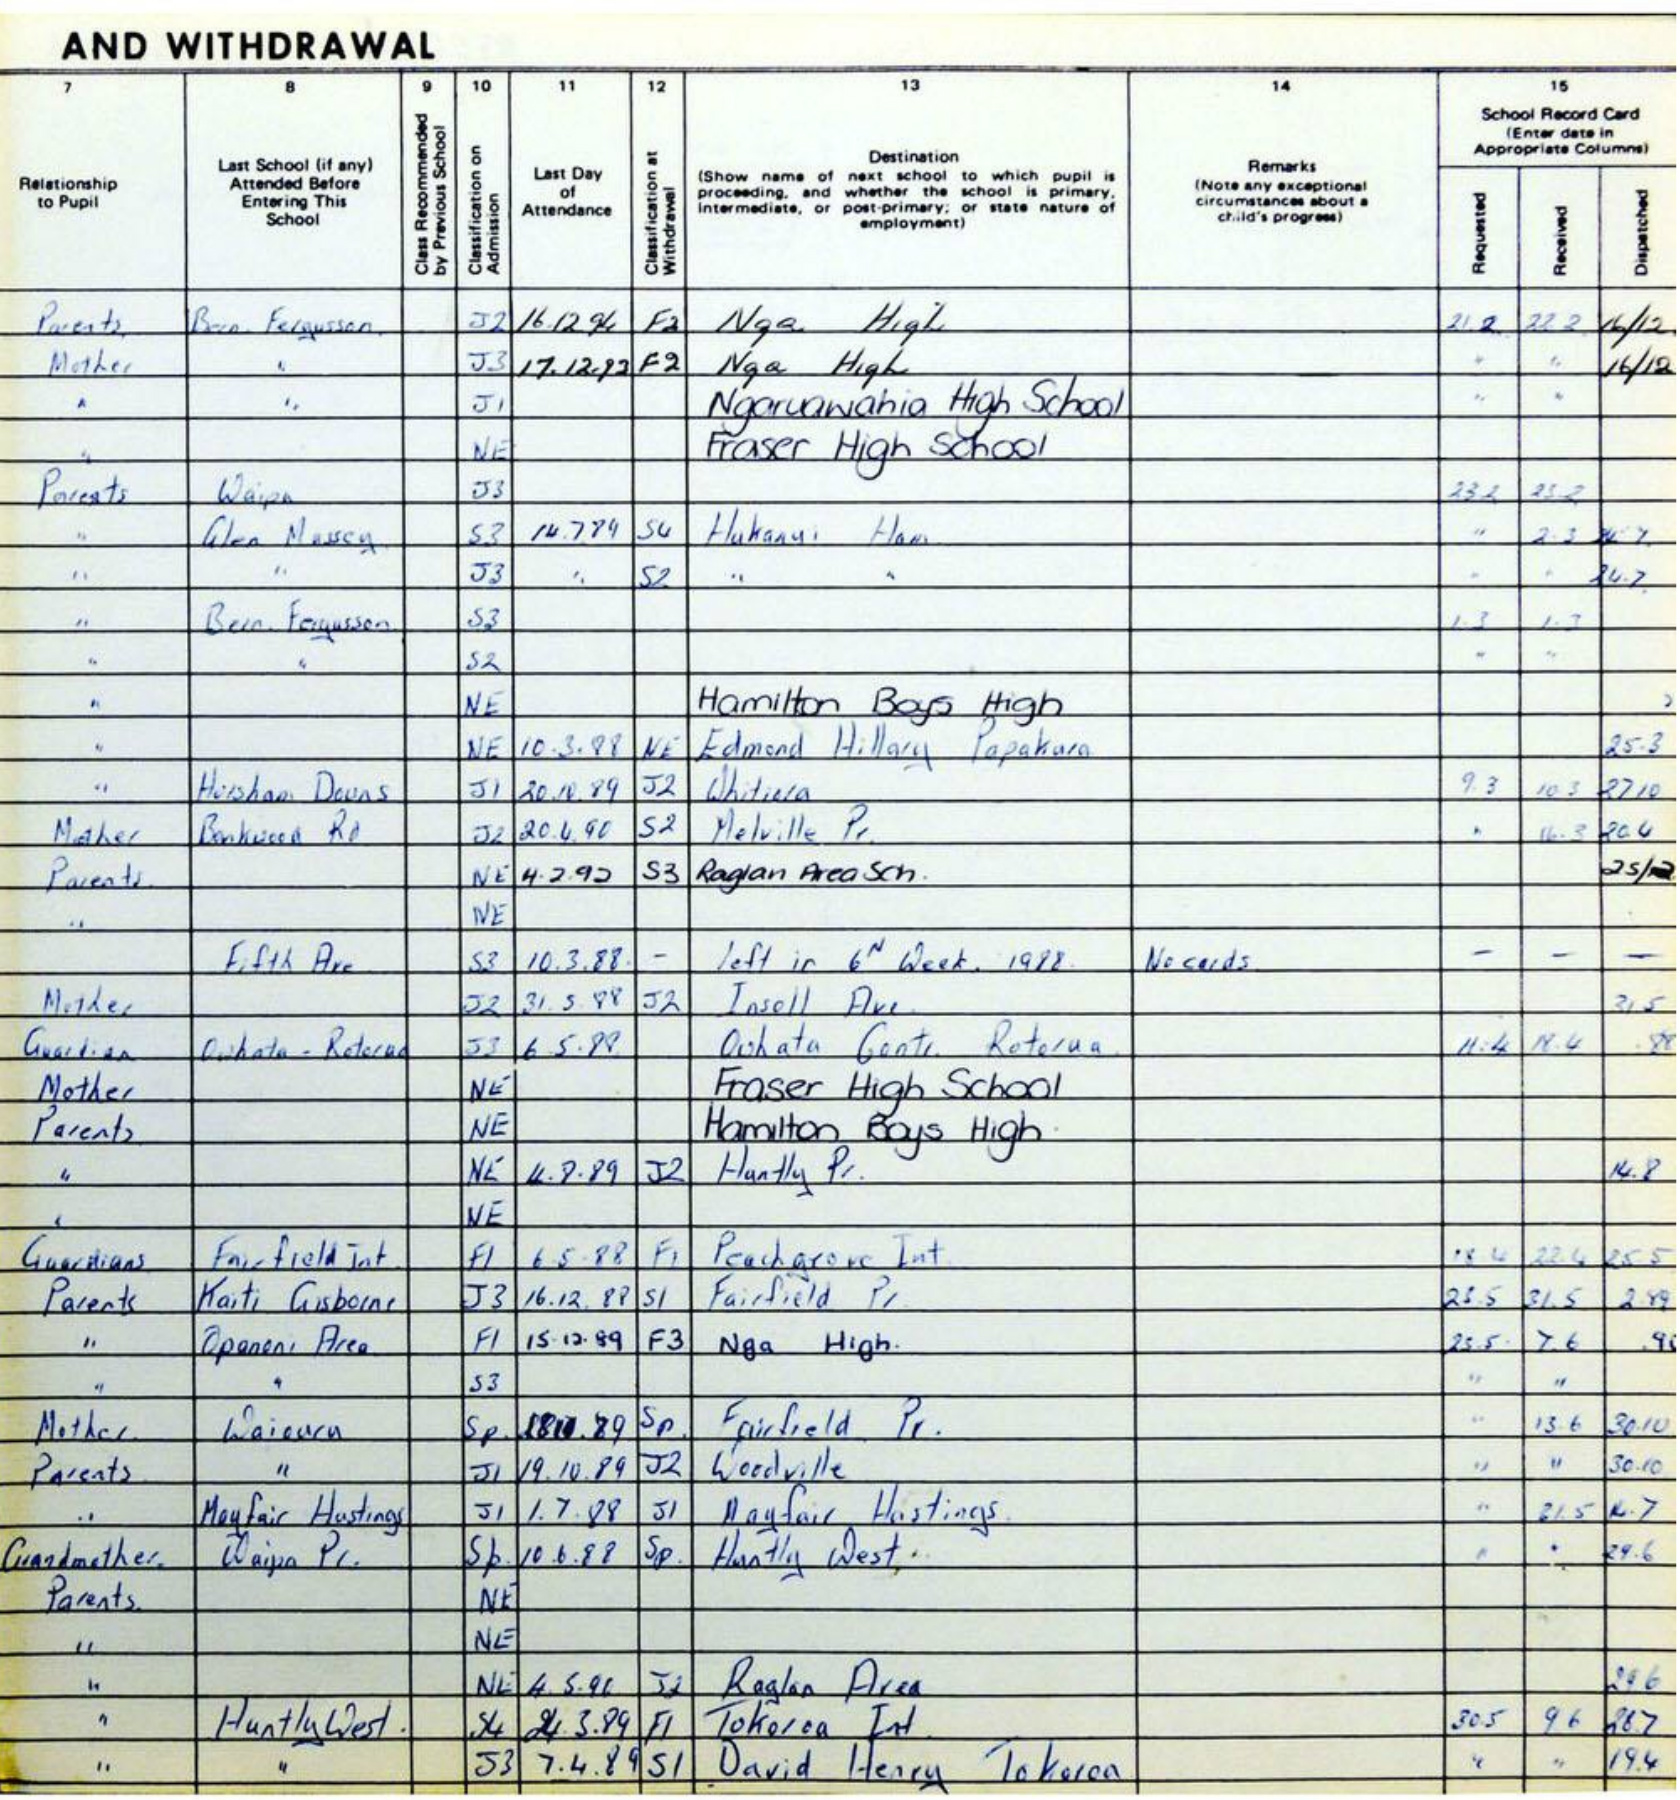 AND WITHDRAWAL
7 8 9 10 11 12 13 14 15
Relationship to Pupil
Last School (if any) Attended Before Entering This School
Class Recommended by Previous School
Classification on Admission
Last Day of Attendance
Classification at Withdrawal
Destination
(Show name of next school to which pupil is proceeding, and whether the school is primary, intermediate, or post-primary; or state nature of employment)
Remarks
(Note any exceptional circumstances about a child's progress)
School Record Card
(Enter date in Appropriate Columns)
Requested Received Dispatched
Parents Bern. Fergusson J2 16.12.94 F2 Nga High 21.2 22.2 16/12
Mother " J3 17.12.93 F2 Nga High " " 16/12
" " J1 Ngaruawahia High School " "
" NE Fraser High School
Parents Waipa J3 23.2 23.2
" Glen Massey S3 14.7.89 S4 Hukanui Ham " 2.3
" " J3 " S2 " " " " 24.7
" Bern. Fergusson S3 1.3 1.3
" " S2 " "
" NE Hamilton Boys High
" NE 10.3.88 NE Edmond Hillary Papakura 25.3
" Horsham Downs J1 20.10.89 J2 Whitiora 9.3 10.3 27.10
Mother Bankwood Rd J2 20.4.90 S2 Melville Pr. " 16.3 20.4
Parents NE 4.2.92 S3 Raglan Area Sch.
" NE
Fifth Ave S3 10.3.88 - left in 6th Week. 1988. No cards - - -
Mother J2 31.5.88 J2 Insoll Ave. 31.5
Guardian Owhata - Rotorua J3 6.5.88 Owhata Contr. Rotorua 11.4 18.4 .88
Mother NE Fraser High School
Parents NE Hamilton Boys High.
" NE 4.8.89 J2 Huntly Pr. 14.8
" NE
Guardians Fairfield Int F1 6.5.88 F1 Peachgrove Int 18.4 22.4 25.5
Parents Kaiti Gisborne J3 16.12.88 S1 Fairfield Pr 25.5 31.5 2.89
" Opononi Area F1 15.12.89 F3 Nga High. 25.5 7.6 .90
" " S3 " "
Mother Waiouru Sp. 89 Sp. Fairfield Pr. " 13.6 30.10
Parents " J1 19.10.89 J2 Woodville " " 30.10
" Mayfair Hastings J1 1.7.88 J1 Mayfair Hastings " 31.5 14.7
Grandmother Waipa Pr. Sp. 10.6.88 Sp. Huntly West. " " 29.6
Parents NE
" NE
" NE 4.5.90 J2 Raglan Area 29.6
" Huntly West. S4 24.3.89 F1 Tokoroa Int 30.5 9.6 28.7
" " J3 7.4.89 S1 David Henry Tokoroa " " 19.4